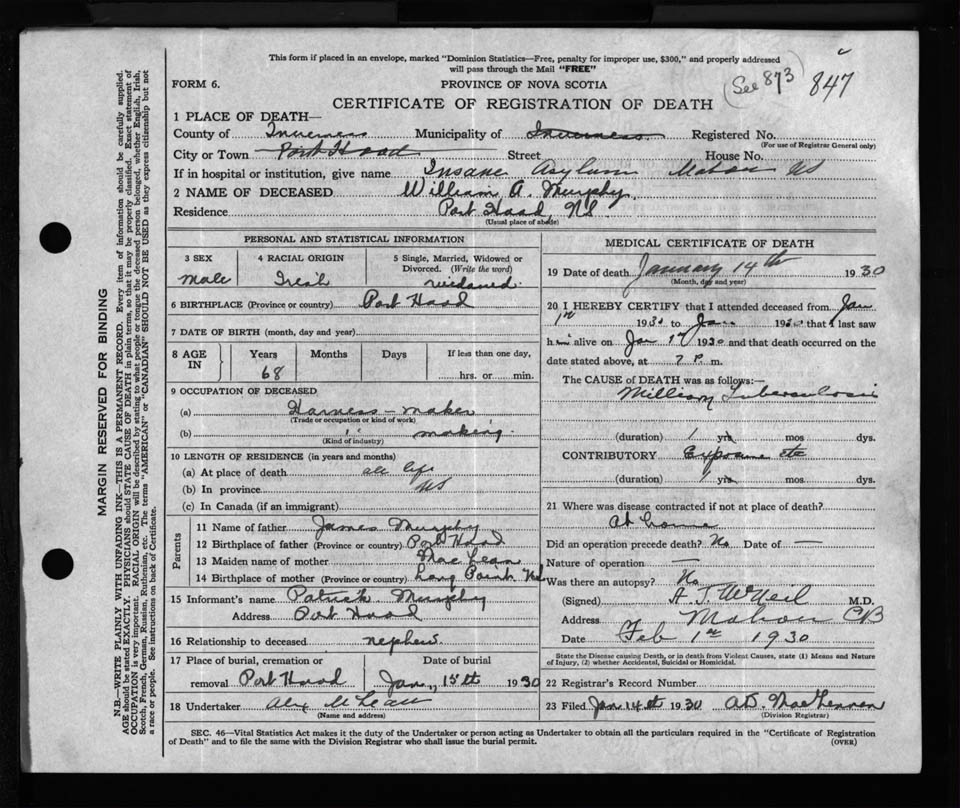 This form if placed in an envelope, marked "Dominion Statistics—Free, penalty for improper use, $300," and properly addressed
will pass through the Mail "FREE"
FORM 6.
PROVINCE OF NOVA SCOTIA
(See 873) 847
CERTIFICATE OF REGISTRATION OF DEATH
1 PLACE OF DEATH—
County of Inverness Municipality of Inverness Registered No.
(For use of Registrar General only)
City or Town Port Hood Street House No.
If in hospital or institution, give name Insane Asylum Mabou NS
2 NAME OF DECEASED William A. Murphy
Residence Port Hood NS
(Usual place of abode)
PERSONAL AND STATISTICAL INFORMATION
3 SEX
male
4 RACIAL ORIGIN
Irish
5 Single, Married, Widowed or
Divorced. (Write the word)
widowed
6 BIRTHPLACE (Province or country) Port Hood
7 DATE OF BIRTH (month, day and year)
8 AGE IN
Years Months Days If less than one day,
68 hrs. or min.
9 OCCUPATION OF DECEASED
(a) Harness-maker
(Trade or occupation or kind of work)
(b) " making
(Kind of industry)
10 LENGTH OF RESIDENCE (in years and months)
(a) At place of death all life
(b) In province NS
(c) In Canada (if an immigrant)
Parents
11 Name of father James Murphy
12 Birthplace of father (Province or country) Port Hood
13 Maiden name of mother MacLean
14 Birthplace of mother (Province or country) Long Point NS
15 Informant's name Patrick Murphy
Address Port Hood
16 Relationship to deceased nephew
17 Place of burial, cremation or Date of burial
removal Port Hood Jan., 15th 1930
18 Undertaker Alex McLean
(Name and address)
MEDICAL CERTIFICATE OF DEATH
19 Date of death January 14th 1930
(Month, day and year)
20 I HEREBY CERTIFY that I attended deceased from Jan
1st 1930 to Jan 1930 that I last saw
him alive on Jan 1930 and that death occurred on the
date stated above, at 7 P. m.
The CAUSE OF DEATH was as follows:—
Milliary Tuberculosis
(duration) 1 yrs mos dys.
CONTRIBUTORY Exposure etc
(duration) 1 yrs mos dys.
21 Where was disease contracted if not at place of death?
At home
Did an operation precede death? No Date of —
Nature of operation —
Was there an autopsy? No
(Signed) A. J. McNeil M.D.
Address Mabou CB
Date Feb 1st 1930
State the Disease causing Death, or in death from Violent Causes, state (1) Means and Nature
of Injury, (2) whether Accidental, Suicidal or Homicidal.
22 Registrar's Record Number
23 Filed Jan 14th 1930
(Division Registrar)
SEC. 46—Vital Statistics Act makes it the duty of the Undertaker or person acting as Undertaker to obtain all the particulars required in the "Certificate of Registration
of Death" and to file the same with the Division Registrar who shall issue the burial permit. (OVER)
MARGIN RESERVED FOR BINDING
N.B.—WRITE PLAINLY WITH UNFADING INK—THIS IS A PERMANENT RECORD. Every item of information should be carefully supplied.
AGE should be stated EXACTLY. PHYSICIANS should STATE CAUSE OF DEATH in plain terms, so that it may be properly classified. Exact statement of
OCCUPATION is very important. RACIAL ORIGIN will be described by stating to what people or tongue the deceased person belonged, whether English, Irish,
Scotch, French, German, Russian, Ruthenian, etc. The terms "AMERICAN" or "CANADIAN" SHOULD NOT BE USED as they express citizenship but not
a race or people. See instructions on back of Certificate.